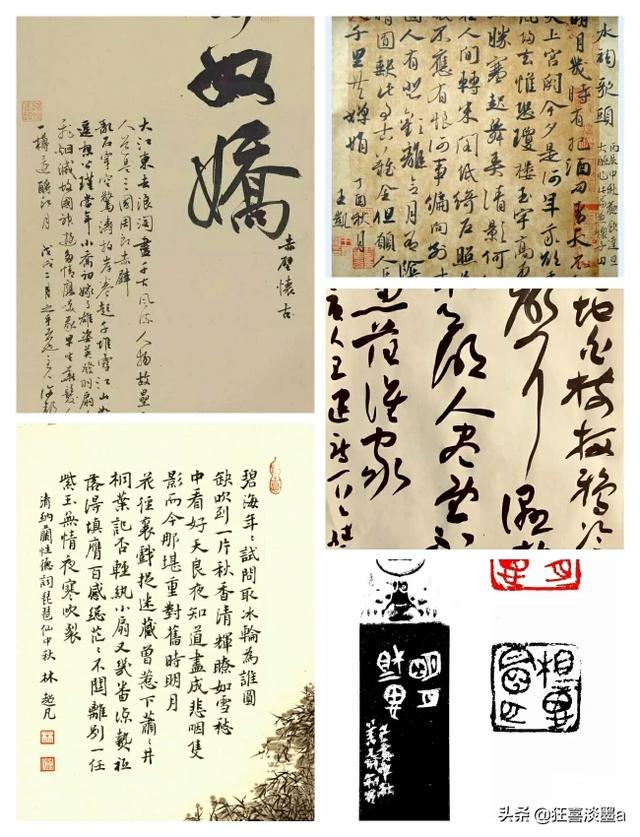 奴嬌
赤壁懷古
大江東去浪淘盡千古風流人物故壘
人道是三國周郎赤壁
亂石穿空驚濤拍岸卷起千堆雪江山如
遙想公瑾當年小喬初嫁了雄姿英發羽扇
飛烟滅故國神遊多情應笑我早生華髮
一樽還酹江月 戊戌二月
水調歌頭 丙辰中秋歡飲達旦
大醉作此篇兼懷子由
明月幾時有把酒問青天不
天上宮闕今夕是何年我欲乘
風歸去惟恐瓊樓玉宇高處
勝寒起舞弄清影何
在人間轉朱閣低綺戶照
眠不應有恨何事偏向別
圓人有悲歡離合月有陰
晴圓缺此事古難全但願人長
千里共嬋娟 丁酉秋月 王凱
地白樹栖鴉冷
濕
人盡望
思落誰家
唐人王建詩
碧海年々試問取冰輪為誰圓
缺吹到一片秋香清輝瞭如雪愁
中看好天良夜知道盡成悲咽隻
影而今那堪重對舊時明月
花徑裏戲捉迷藏曾惹下蕭々井
桐葉記否輕紈小扇又幾番涼熱祗
落得填膺百感總茫々不關離別一任
紫玉無情夜寒吹裂
清納蘭性德詞琵琶仙中秋 林超凡
明月
头条 @狂喜淡墨a